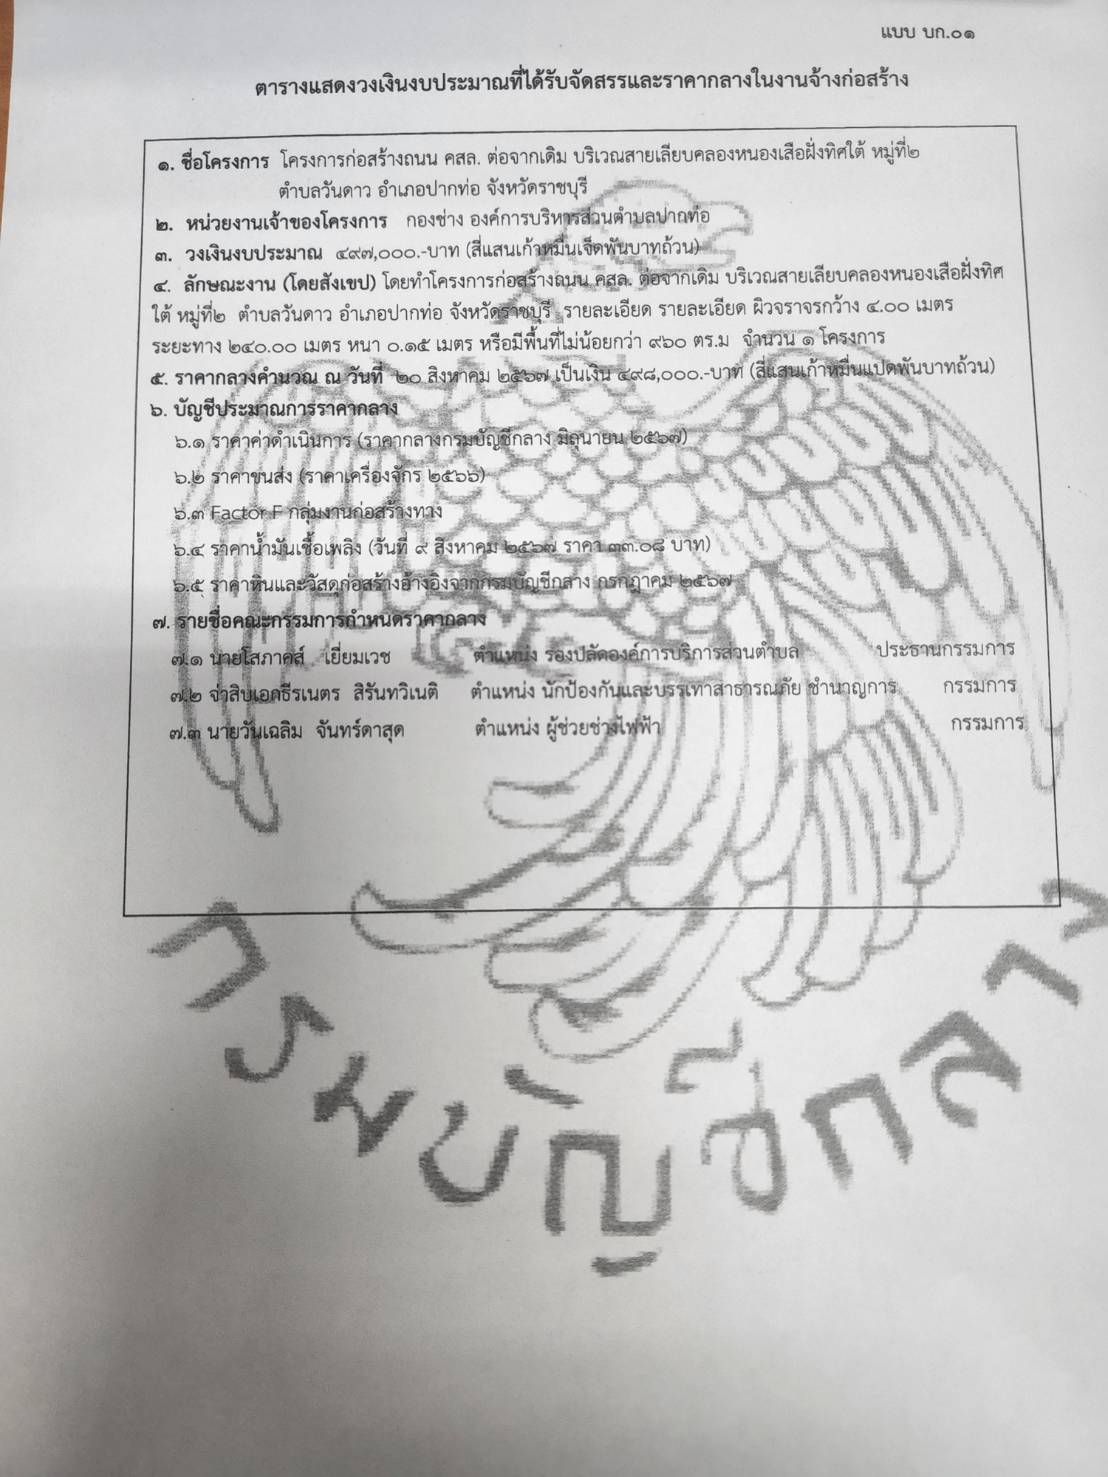 แบบ บก.๐๑
ตารางแสดงวงเงินงบประมาณที่ได้รับจัดสรรและราคากลางในงานจ้างก่อสร้าง
๑. ชื่อโครงการ โครงการก่อสร้างถนน คสล. ต่อจากเดิม บริเวณสายเลียบคลองหนองเสือฝั่งทิศใต้ หมู่ที่๒
ตำบลวันดาว อำเภอปากท่อ จังหวัดราชบุรี
๒. หน่วยงานเจ้าของโครงการ กองช่าง องค์การบริหารส่วนตำบลปากท่อ
๓. วงเงินงบประมาณ ๔๙๗,๐๐๐.-บาท (สี่แสนเก้าหมื่นเจ็ดพันบาทถ้วน)
๔. ลักษณะงาน (โดยสังเขป) โดยทำโครงการก่อสร้างถนน คสล. ต่อจากเดิม บริเวณสายเลียบคลองหนองเสือฝั่งทิศ
ใต้ หมู่ที่๒ ตำบลวันดาว อำเภอปากท่อ จังหวัดราชบุรี รายละเอียด รายละเอียด ผิวจราจรกว้าง ๔.๐๐ เมตร
ระยะทาง ๒๔๐.๐๐ เมตร หนา ๐.๑๕ เมตร หรือมีพื้นที่ไม่น้อยกว่า ๙๖๐ ตร.ม จำนวน ๑ โครงการ
๕. ราคากลางคำนวณ ณ วันที่ ๒๐ สิงหาคม ๒๕๖๗ เป็นเงิน ๔๙๘,๐๐๐.-บาท (สี่แสนเก้าหมื่นแปดพันบาทถ้วน)
๖. บัญชีประมาณการราคากลาง
๖.๑ ราคาค่าดำเนินการ (ราคากลางกรมบัญชีกลาง มิถุนายน ๒๕๖๗)
๖.๒ ราคาขนส่ง (ราคาเครื่องจักร ๒๕๖๖)
๖.๓ Factor F กลุ่มงานก่อสร้างทาง
๖.๔ ราคาน้ำมันเชื้อเพลิง (วันที่ ๙ สิงหาคม ๒๕๖๗ ราคา ๓๓.๐๘ บาท)
๖.๕ ราคาหินและวัสดุก่อสร้างอ้างอิงจากกรมบัญชีกลาง กรกฎาคม ๒๕๖๗
๗. รายชื่อคณะกรรมการกำหนดราคากลาง
๗.๑ นายโสภาคส์ เยี่ยมเวช ตำแหน่ง รองปลัดองค์การบริการส่วนตำบล ประธานกรรมการ
๗.๒ จ่าสิบเอกธีรเนตร สิรันทวิเนติ ตำแหน่ง นักป้องกันและบรรเทาสาธารณภัย ชำนาญการ กรรมการ
๗.๓ นายวันเฉลิม จันทร์ดาสุด ตำแหน่ง ผู้ช่วยช่างไฟฟ้า กรรมการ
กรมบัญชีกลาง